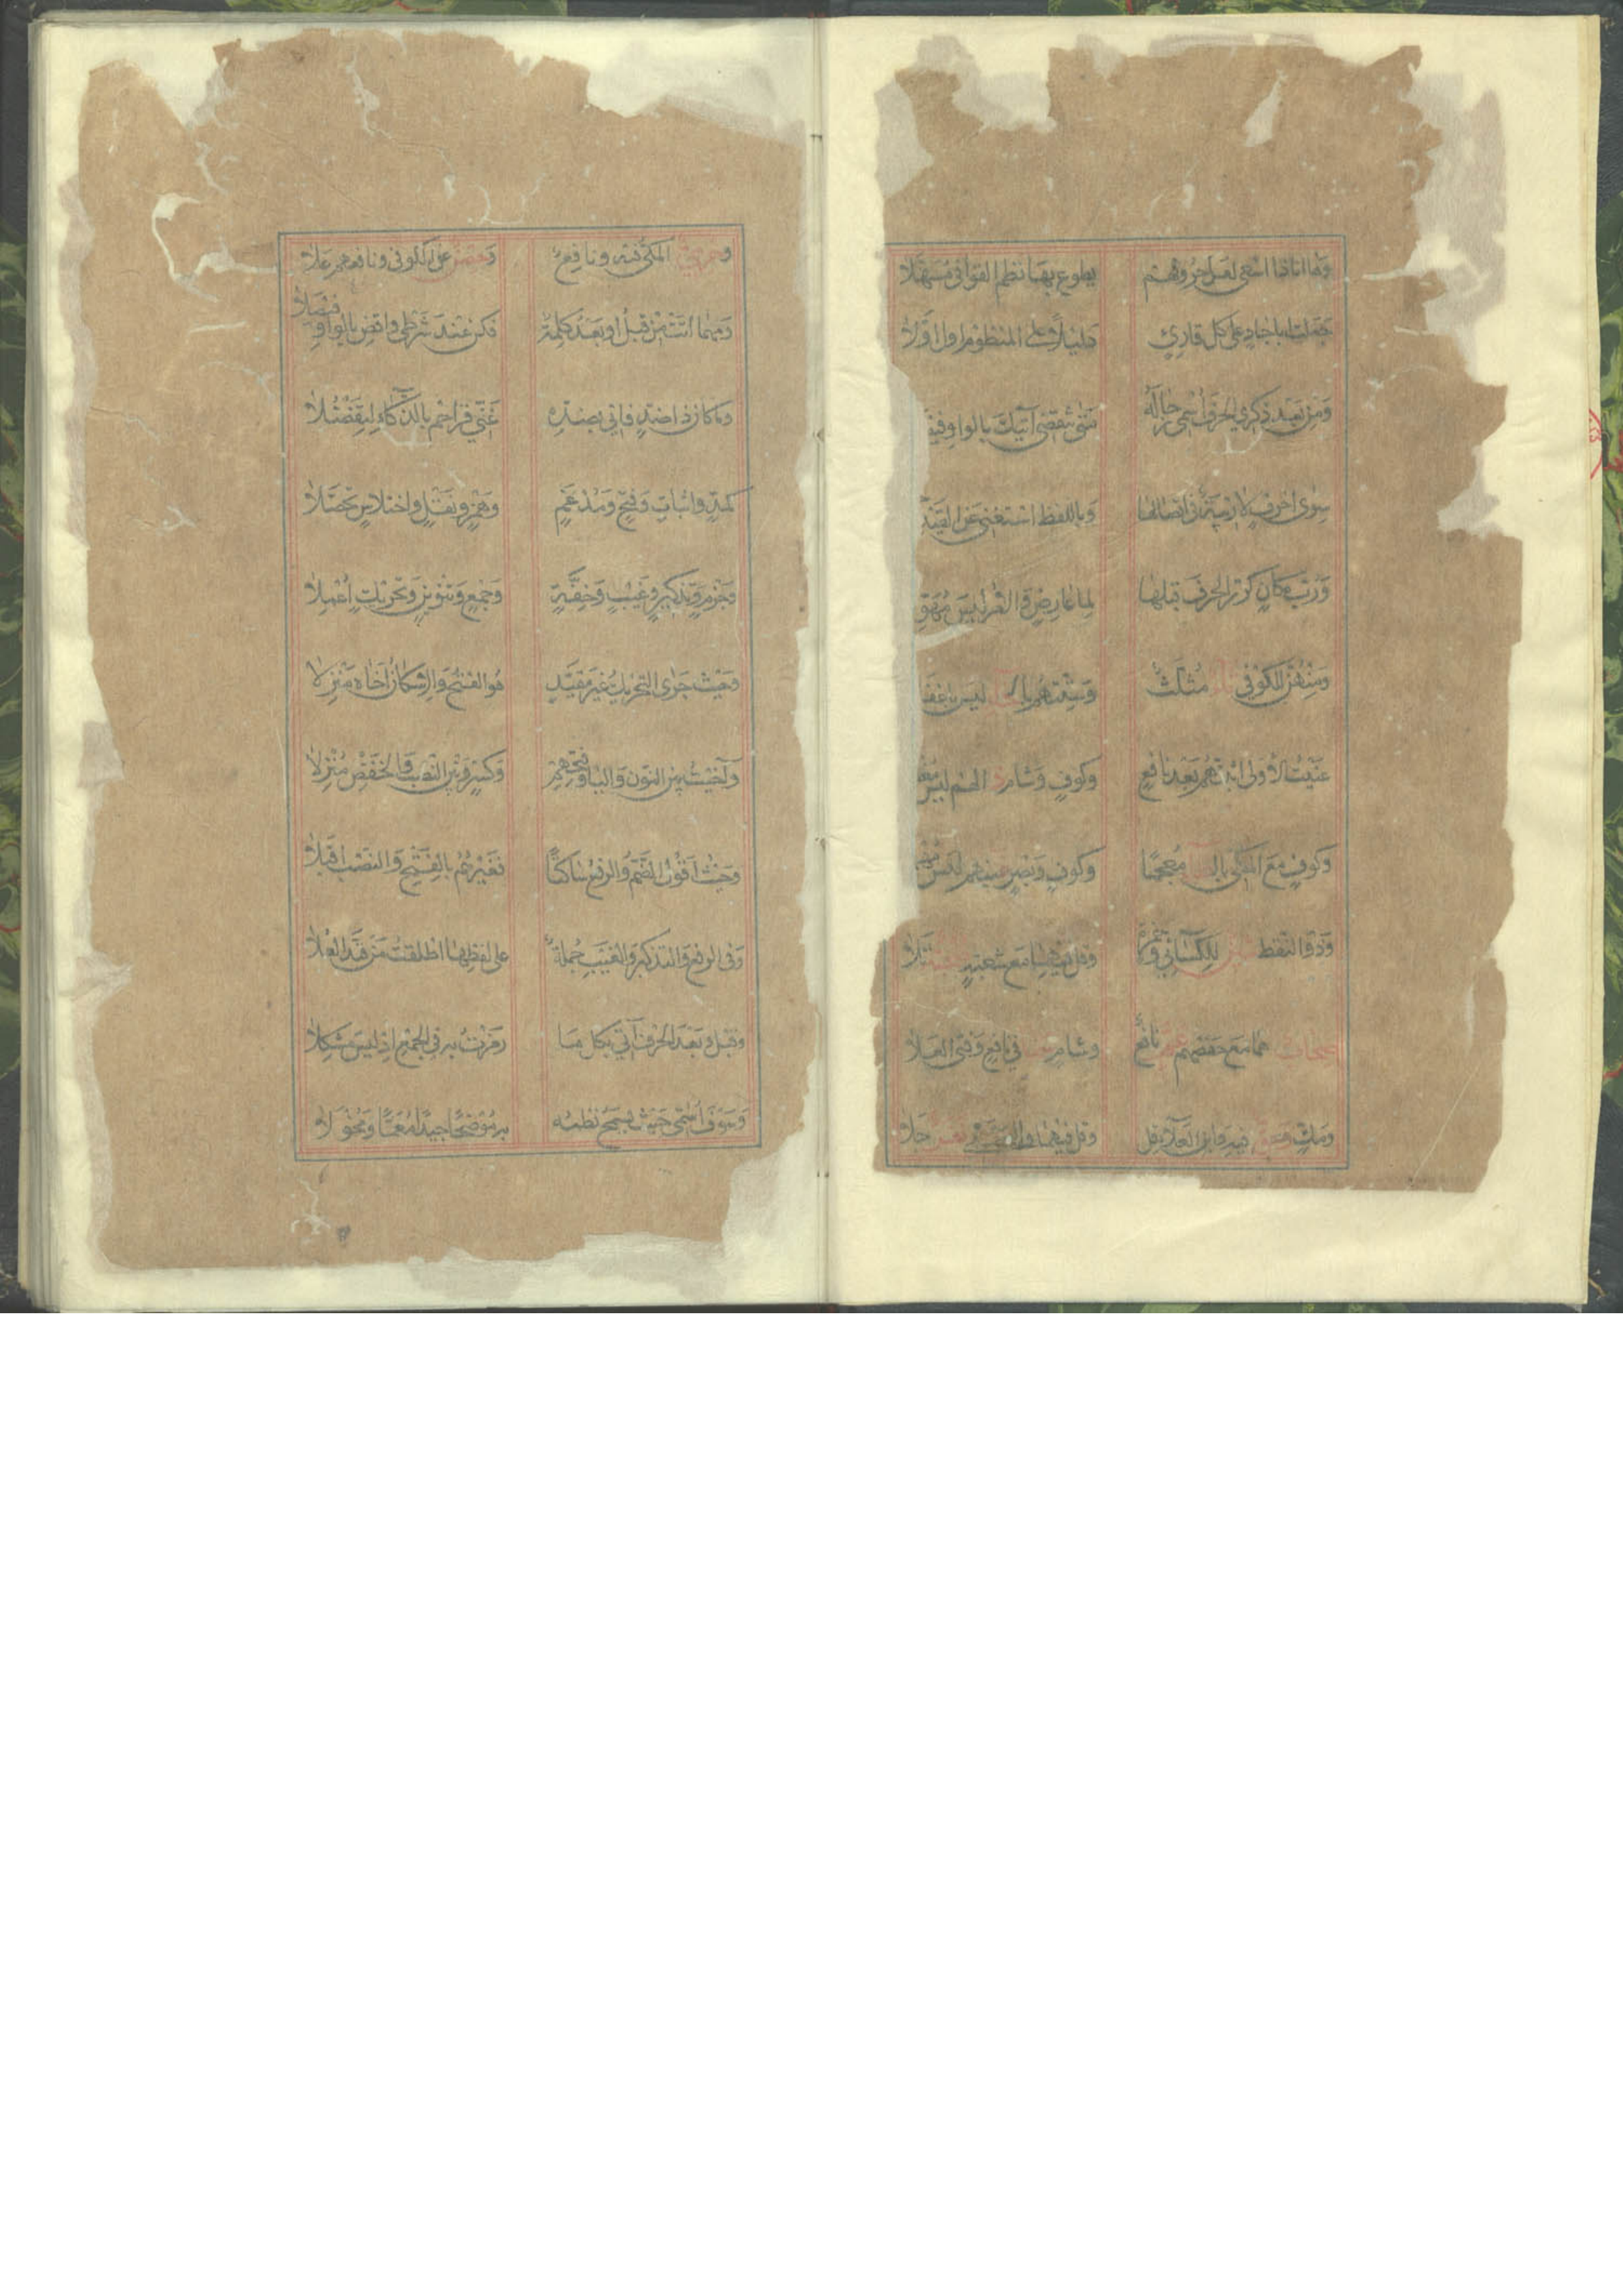 وها انا ذا اسعى لعل حروفهم يطوع بها نظم القوافي مسهلا
جعلت اباجاد على كل قارئ دليلا على المنظوم اول اولا
ومن بعد ذكري الحرف اسمي رجاله متى تنقضي آتيك بالواو فيصـ
سوى احرف لا ريبة في اتصالها وباللفظ استغني عن القيد
ورب مكان كرر الحرف قبلها لما عارض والامر ليس مهو
ومنهن للكوفي ثاء مثلث وستتهم بالخاء ليس باغفـ
عنيت الاولى اثبتهم بعد نافع وكوف وشام ذالهم ليس مغفـ
وكوف مع المكي بالظاء معجما وكوف وبصر غينهم ليس مهمـ
وذو النقط شين للكسائي وحمزة وقل فيهما مع شعبة صحبة تلا
صحاب هما مع حفصهم عم نافع وشام سما في نافع وفتى العلا
ومك وحق فيه وابن العلاء قل وقل فيهما واليحصبي نفر حلا
وحرمي المكي فيه ونافع وحصن عن الكوفي ونافعهم علا
ومهما اتت من قبل او بعد كلمة فكن عند شرطي واقض بالواو فيصلا
وما كان ذا ضد فاني بضده غني فزاحم بالذكاء لتفضلا
كمد واثبات وفتح ومدغم وهمز ونقل واختلاس تحصلا
وجزم وتذكير وغيب وخفة وجمع وتنوين وتحريك اعملا
وحيث جرى التحريك غير مقيد هو الفتح والاسكان آخاه منزلا
وآخيت بين النون واليا وفتحهم وكسر وبين النصب والخفض منزلا
وحيث اقول الضم والرفع ساكتا فغيرهم بالفتح والنصب اقبلا
وفي الرفع والتذكير والغيب جملة على لفظها اطلقت من قيد العلا
وقبل وبعد الحرف آتي بكل ما رمزت به في الجمع اذ ليس مشكلا
وسوف اسمي حيث يسمح نظمه به موضحا جيدا معما ومخولا